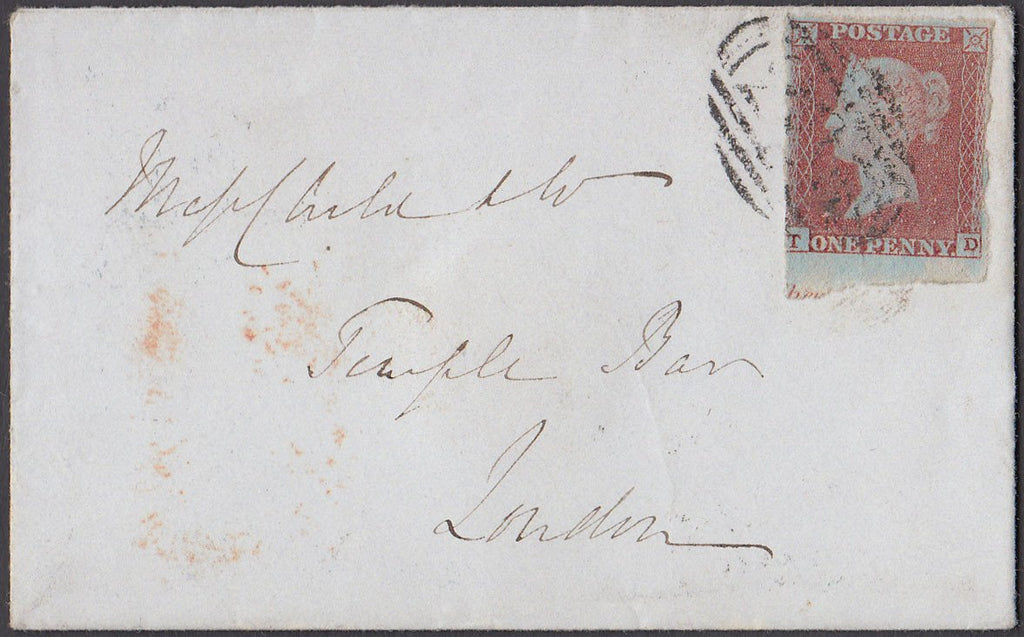 POSTAGE
T ONE PENNY. D
Messrs Child & Co
Temple Bar
London